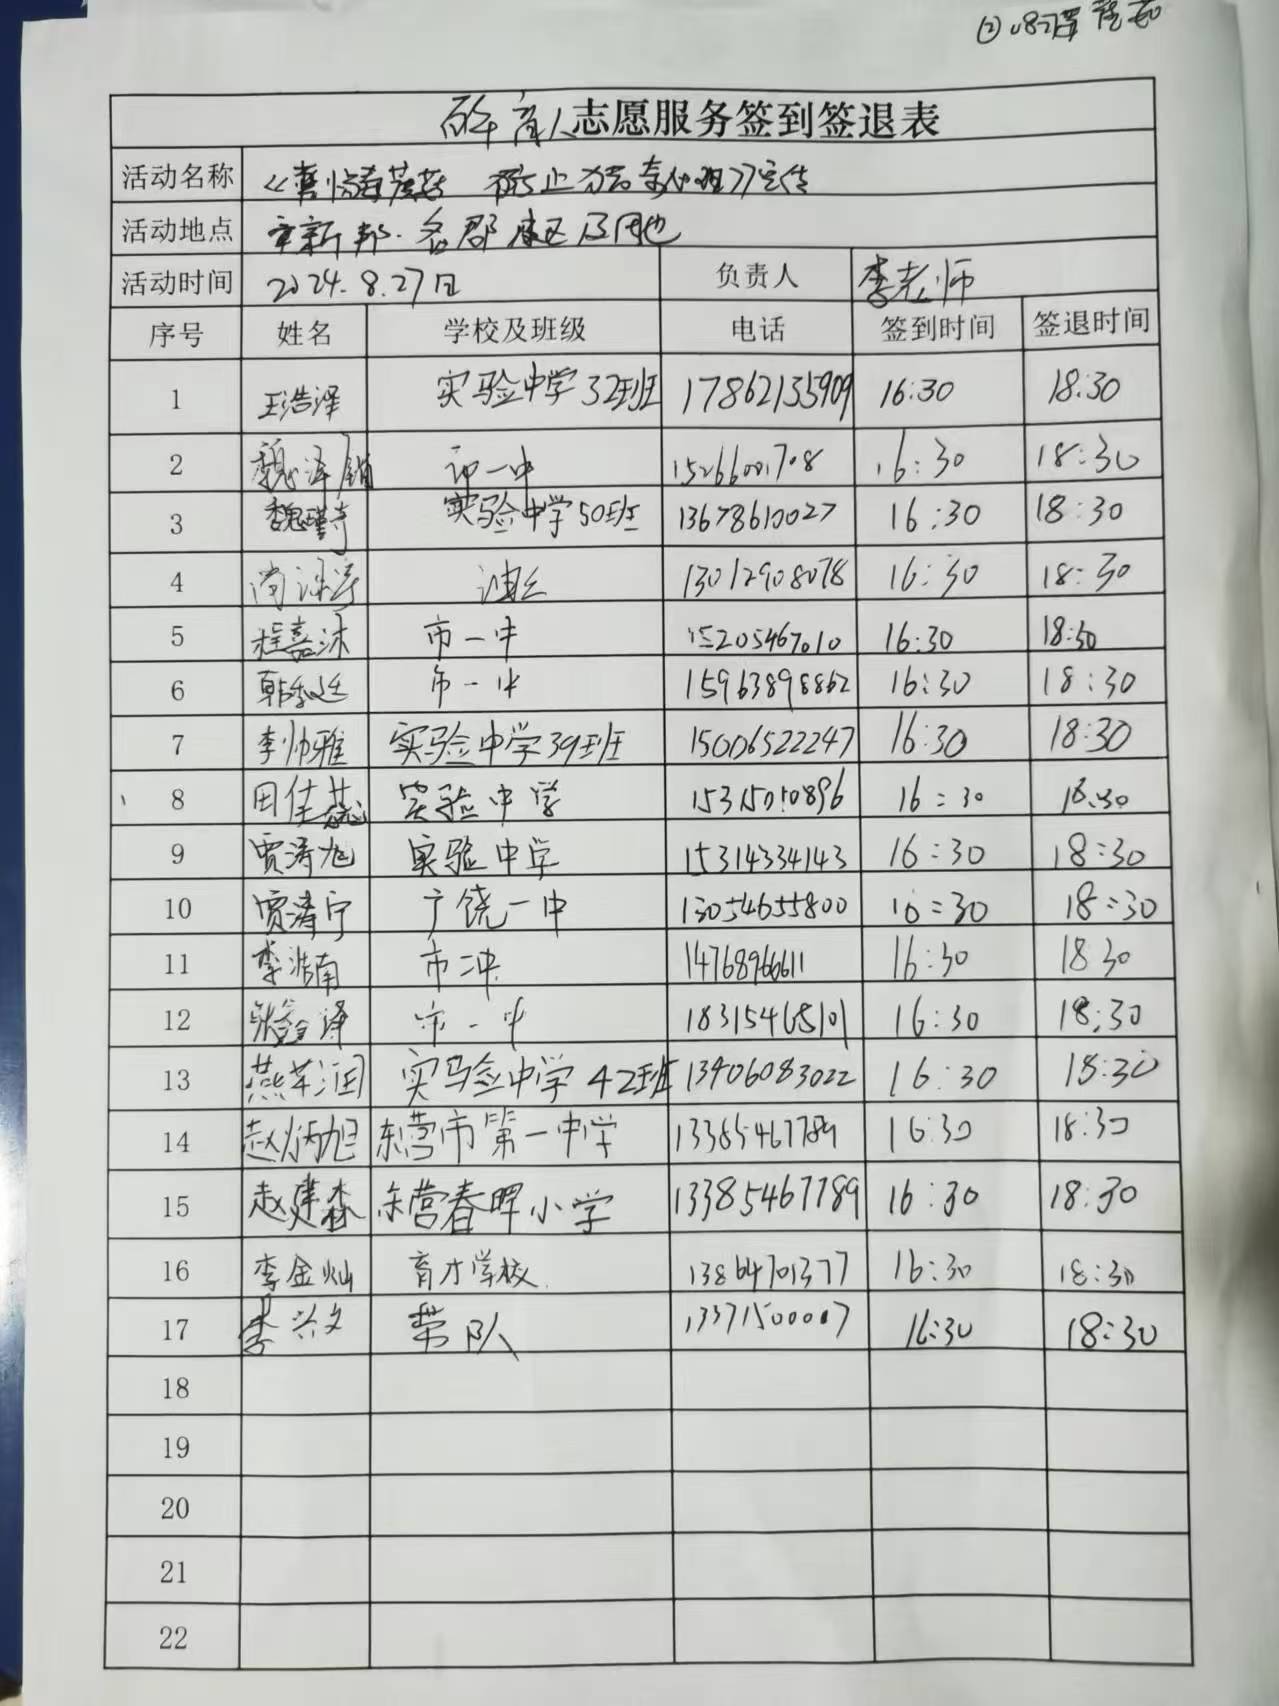 百年育人志愿服务签到签退表
活动名称
活动地点
活动时间 2024.8.27日 负责人 李老师
序号 姓名 学校及班级 电话 签到时间 签退时间
1 王浩泽 实验中学32班 17862135909 16:30 18:30
2 魏泽 市一中 15266001708 16:30 18:30
3 魏 实验中学50班 13678610027 16:30 18:30
4 尚 13012908078 16:30 18:30
5 程嘉沫 市一中 15205467010 16:30 18:30
6 韩 市一中 15963898862 16:30 18:30
7 李帅雅 实验中学39班 15006522247 16:30 18:30
8 田佳蕊 实验中学 15315010896 16:30 18:30
9 贾涛旭 实验中学 15314334143 16:30 18:30
10 贾涛宁 广饶一中 13054655800 16:30 18:30
11 李浩南 市二中 14768966611 16:30 18:30
12 张鑫泽 市一中 18315468101 16:30 18:30
13 燕芊润 实验中学42班 13406083022 16:30 18:30
14 赵炳旭 东营市第一中学 13385467789 16:30 18:30
15 赵建森 东营春晖小学 13385467789 16:30 18:30
16 李金灿 育才学校 13864701377 16:30 18:30
17 李兴文 带队 13371500007 16:30 18:30
18
19
20
21
22